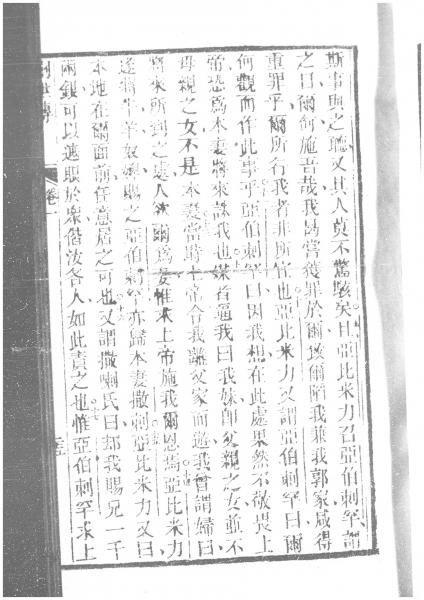 斯事與之聽、又其人莫不驚駭矣、且亞比米力召亞伯剌罕、謂
之曰、爾何施吾哉、我曷嘗獲罪於爾、致爾陷我兼我郭家、咸得
重罪乎、爾所行我者、非所宜也、亞比米力又謂亞伯剌罕曰、爾
何觀而作此事乎、亞伯剌罕曰、因我想在此處果然不敬畏上
帝、恐為本妻將來誅我也、
母親之女、不是本妻、當時上帝令我離父家而遊、我會謂婦曰、
將來所到之處、人欲爾為妾、惟求上帝施我爾恩焉、亞比米力
遂將牛羊奴婢賜之亞伯剌罕、亦歸本妻撒剌、亞比米力又曰、
本地在爾面前、任意居之可也、又謂撒喇氏曰、却我賜兄一千
兩銀、可以遮眼於眾、偕汝各人、如此責之也、惟亞伯剌罕求上
卷一